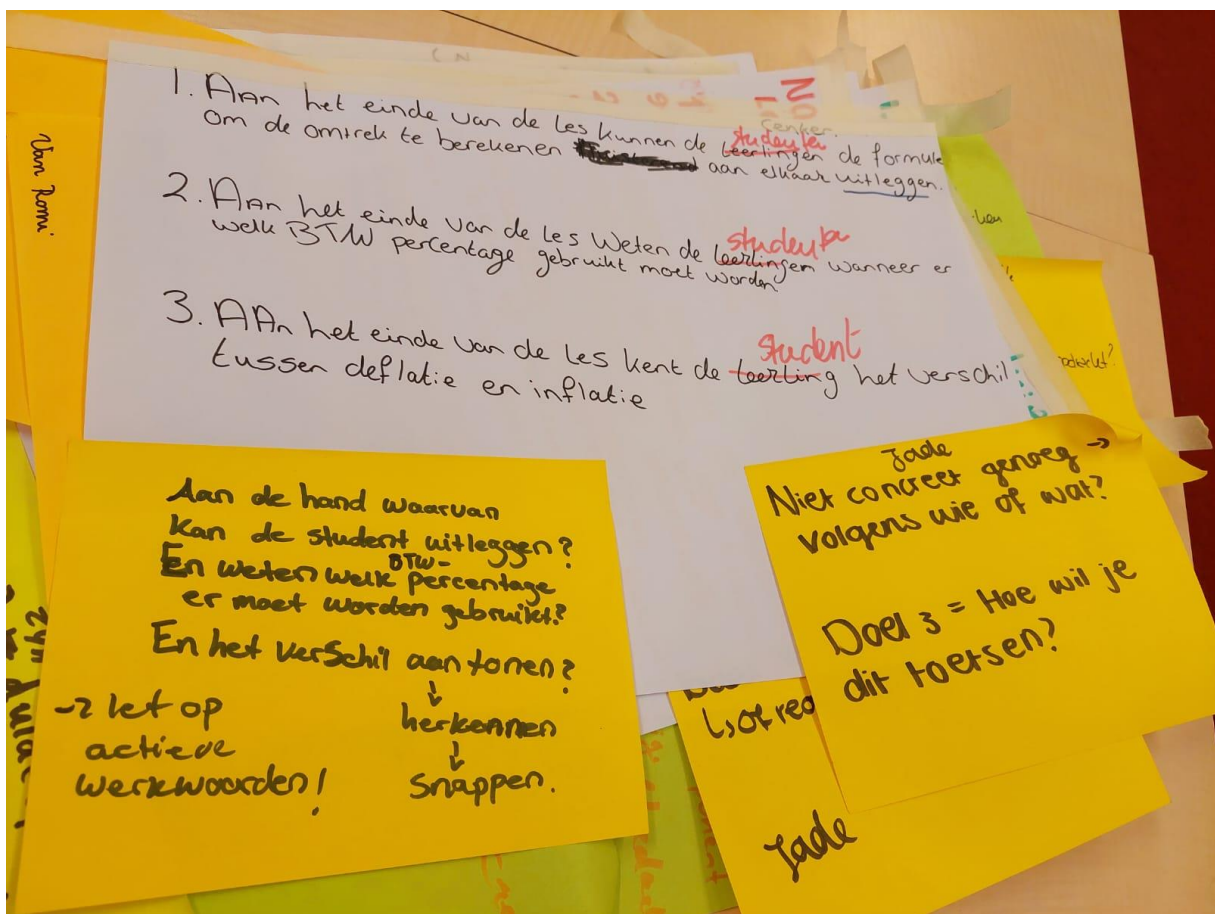 Van Romi
1. AAn het einde van de les kunnen de studenten leerlingen de formule
om de omtrek te berekenen aan elkaar uitleggen.
2. AAn het einde van de les weten de studenten leerlingen wanneer er
welk BTW percentage gebruikt moet worden.
3. AAn het einde van de les kent de student leerling het verschil
tussen deflatie en inflatie
Aan de hand waarvan
kan de student uitleggen?
En weten welk BTW-percentage
er moet worden gebruikt?
En het verschil aantonen?
↓
herkennen
↓
snappen.
→ let op
actieve
werkwoorden!
Jade
Niet concreet genoeg →
volgens wie of wat?
Doel 3 = Hoe wil je
dit toetsen?
Jade